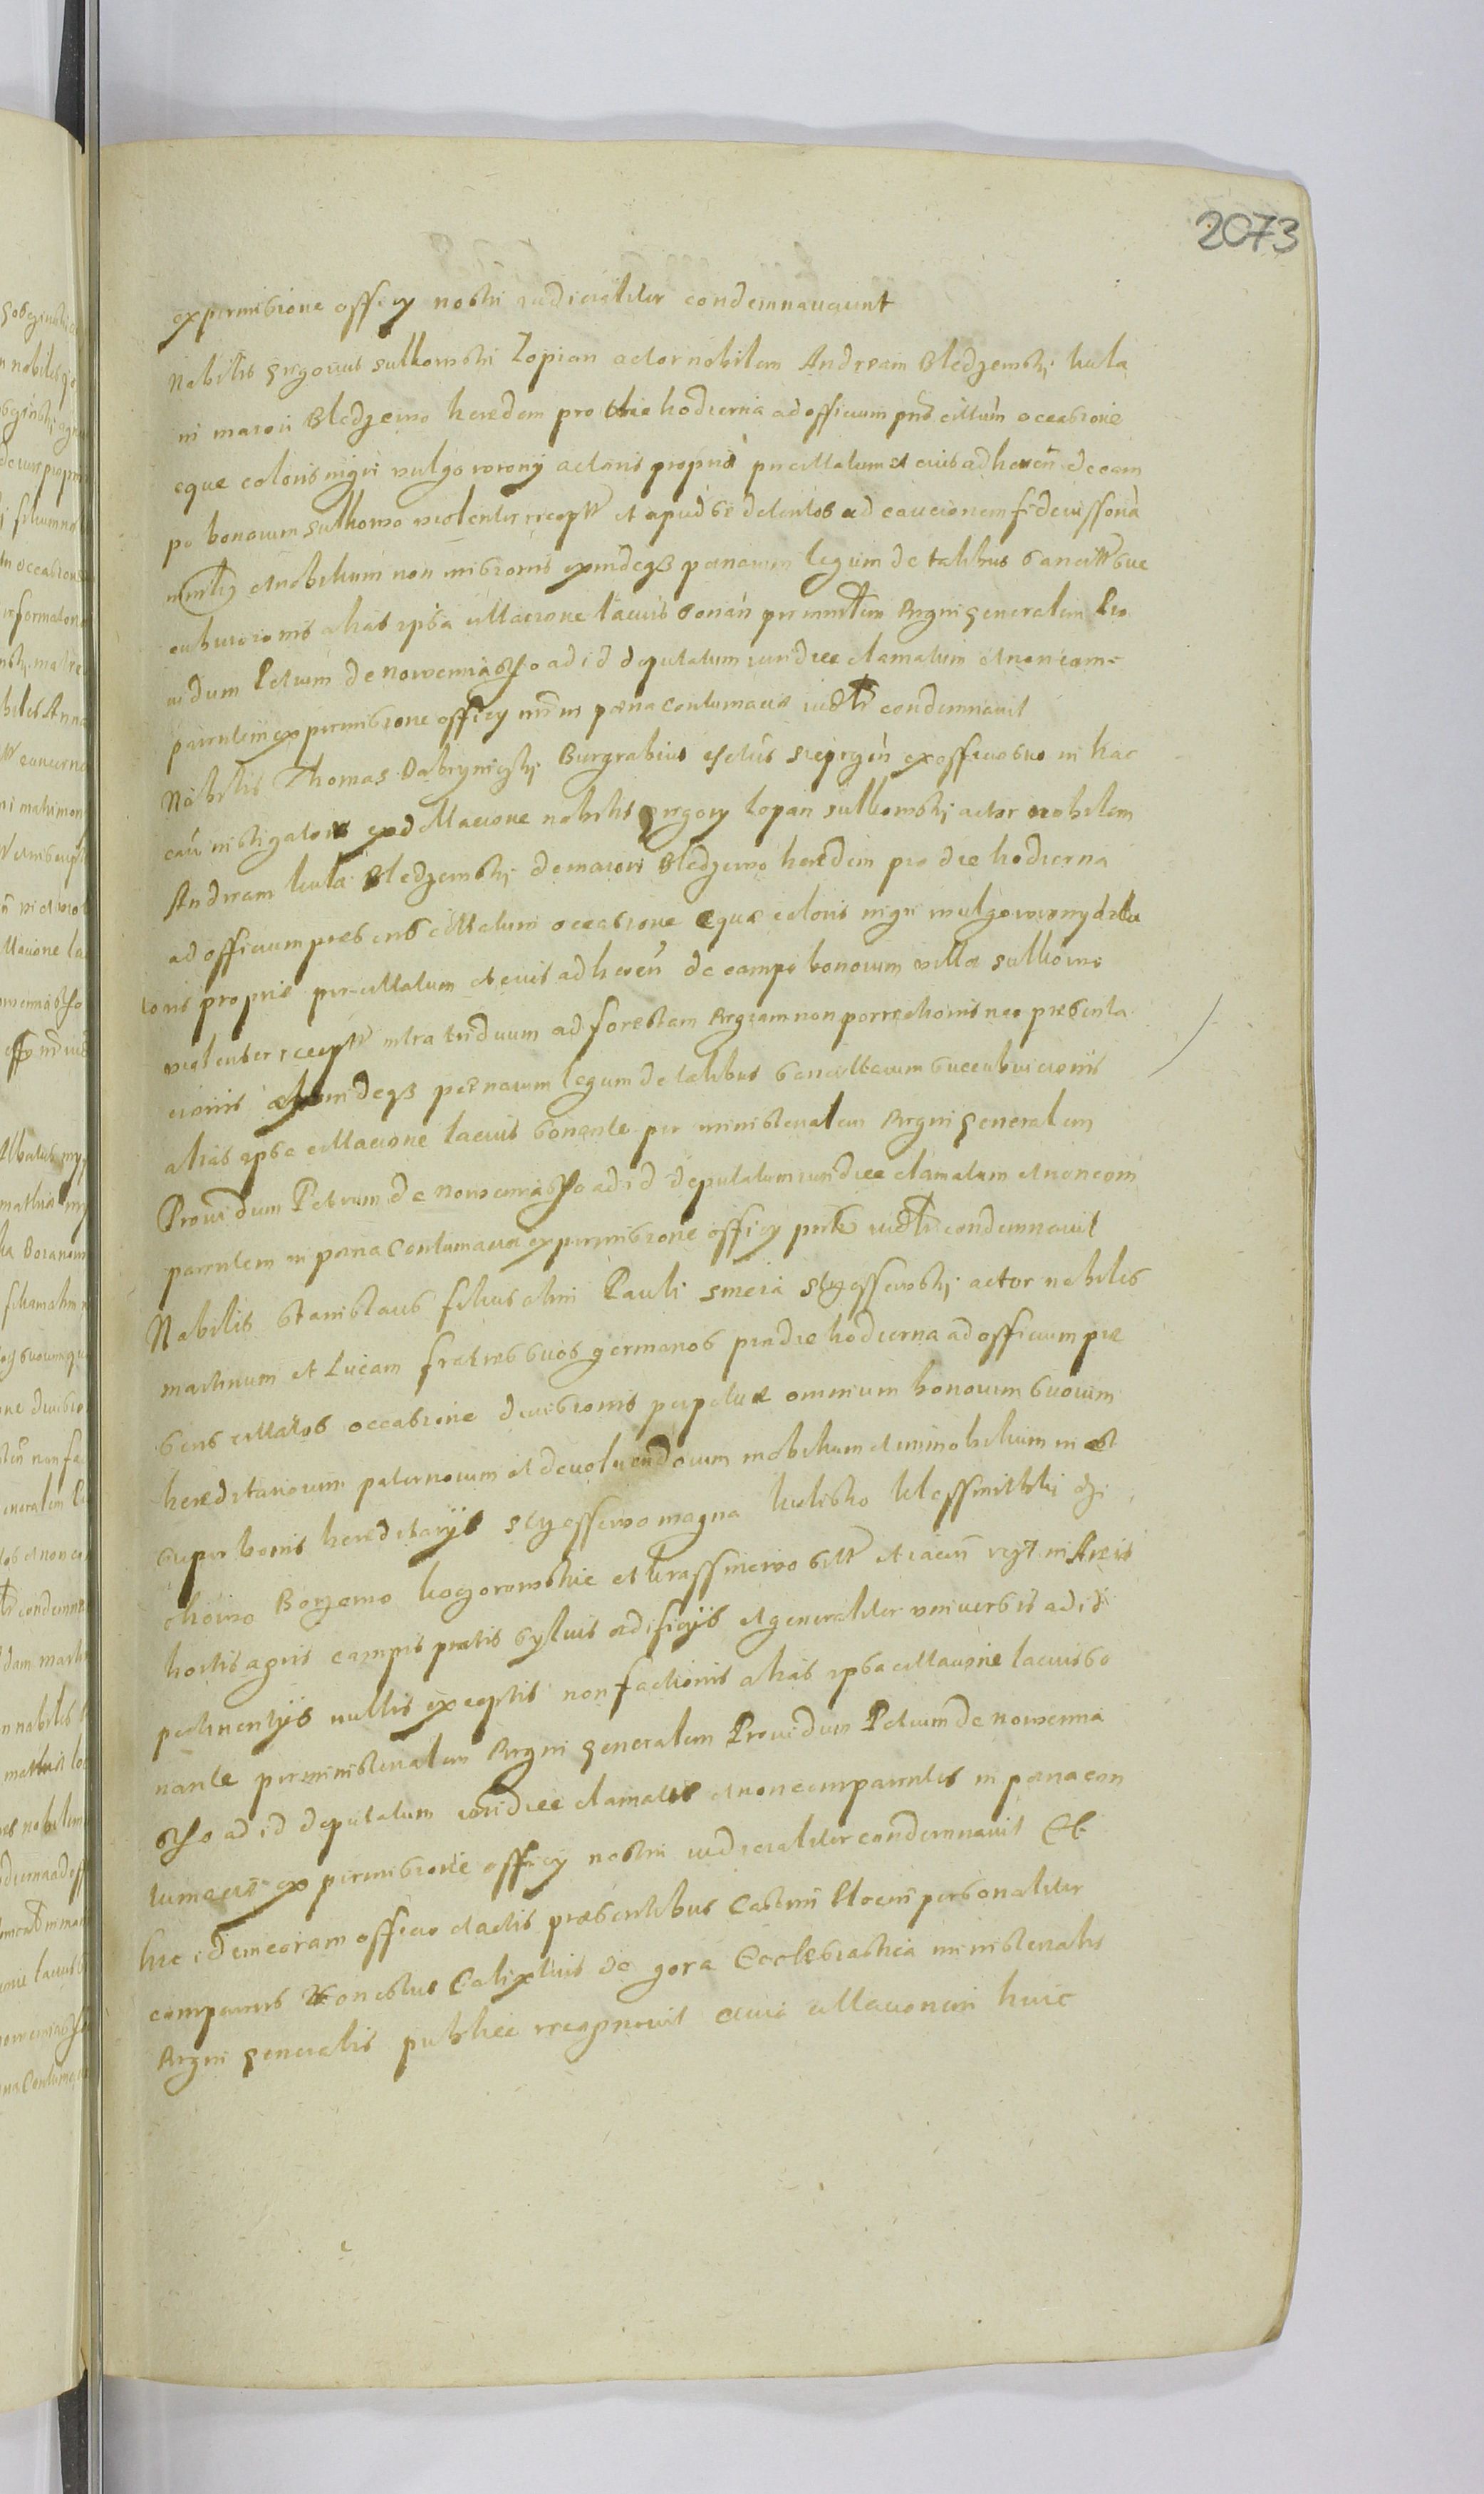 2073
ex permissione officy nostri iudicialiter condemnauerunt
Nobilis Gregorius Sulkowski Lopian actor nobilem Andream Bledzewski kula
in maiori Bledzewo heredem pro die hodierna ad officium pns cittatum occasione
eque coloris nigri vulgo wrony actoris proprie per cittatum et eius adheren de cam
po bonorum Sulkowo violenter recept et apud se detentos ad caucionem fideiussoria
et nobilium non missionis exindeqz penarum legum de talibus sancitt suc
cubicionis alias ipsa cittacione lacius sonan per mintlem Regni generalem Pro
uidum Petrum de Nowemiasto ad id deputatum iuridice clamatum et non com-
parentem ex permissione officy nri in pena contumacie iudltr condemnauit
Nobilis Thomas Dabrynieski Burgrabius estris Sieprcen ex officio suo in hac
cau instigator ex dellacione nobilis Gregory Lopian Sulkowski actor nobilem
Andream kula Bledzewski de maiori Bledzewo heredem pro die hodierna
ad officium presens cittatum occasione eque coloris nigri vulgo wrony della
toris proprie per cittatum et eius adheren de campo bonorum ville Sulkowo
violenter recept intra triduum ad forestam Regiam non porrectionis nec presenta
cionis exindeqz penarum legum de talibus sancittarum succubicionis
alias ipsa cittacione lacius sonante per ministerialem Regni generalem
Prouidum Petrum de Nowemiasto ad id deputatum iuridice clamatum et non com
parentem in pena contumacie ex permissione officy pntis iudltr condemnauit
Nobilis Stanislaus filius olim Pauli Smeia actor nobiles
Martinum et Lucam fratres suos germanos pro die hodierna ad officium pre
sens cittatos occasione diuisionis perpetue omnium bonorum suorum
hereditariorum paternorum et deuoluendorum mobilium et immobilium in et
super bonis hereditarijs magna
Borzewo et sitt et iacen in Areis
hortis agris campis pratis syluis edificijs et generaliter vniuersis ad id
pertinentijs nullis exceptis non factionis alias ipsa cittacione lacius so
nante per ministerialem Regni generalem Prouidum Petrum de Nowemia
sto ad id deputatum iuridice clamatos et non comparentes in pena con
tumacie ex permissione officy nostri iudicialiter condemnauit Et
hic idem coram officio et actis presentibus Castren Plocen personaliter
comparens Honestus Calixtus de gora Ecclesiastica ministerialis
Regni generalis publice recognouit quia cittacionem huic